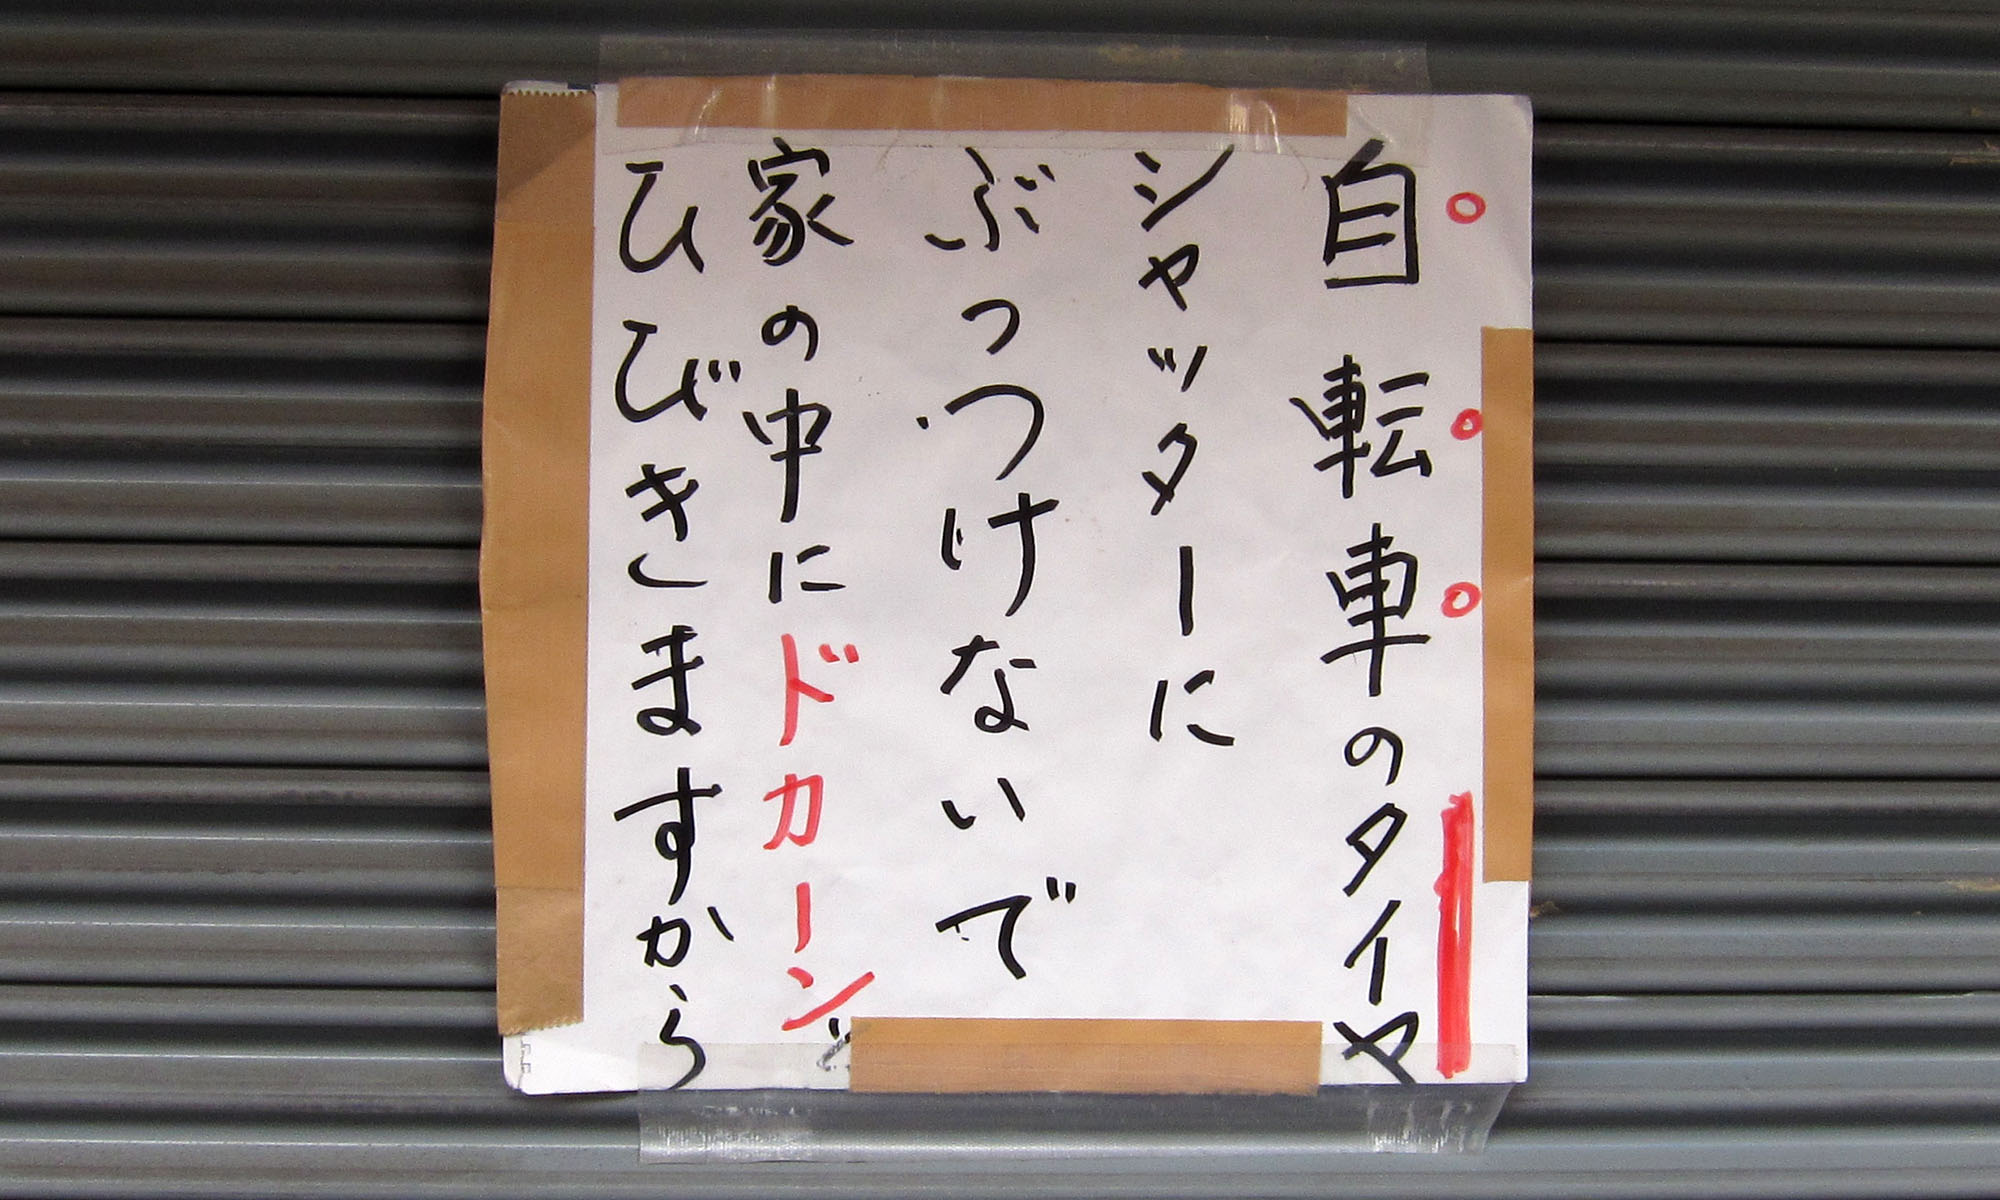 自転車のタイヤ
シャッターに
ぶっつけないで
家の中にドカーン〃
ひびきますから